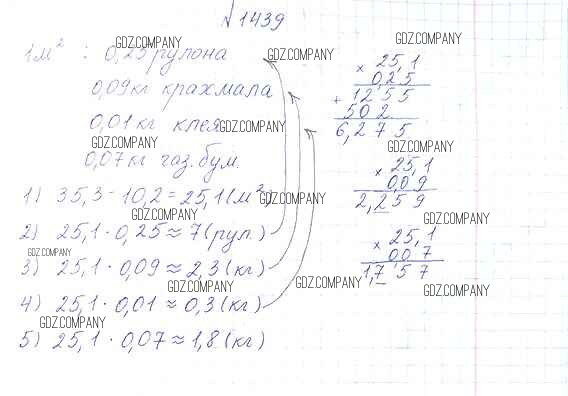 №1439
1 м² : 0,25 рулона
0,09 кг крахмала
0,01 кг клея
0,07 кг газ. бум.
1) 35,3 - 10,2 = 25,1 (м²)
2) 25,1 · 0,25 ≈ 7 (рул.)
3) 25,1 · 0,09 ≈ 2,3 (кг)
4) 25,1 · 0,01 ≈ 0,3 (кг)
5) 25,1 · 0,07 ≈ 1,8 (кг)
× 25,1
0,25
+ 1255
502
6,275
× 25,1
0,09
2,259
× 25,1
0,07
1,757
GDZ.COMPANY
GDZ.COMPANY
GDZ.COMPANY
GDZ.COMPANY
GDZ.COMPANY
GDZ.COMPANY
GDZ.COMPANY
GDZ.COMPANY
GDZ.COMPANY
GDZ.COMPANY
GDZ.COMPANY
GDZ.COMPANY
GDZ.COMPANY
GDZ.COMPANY